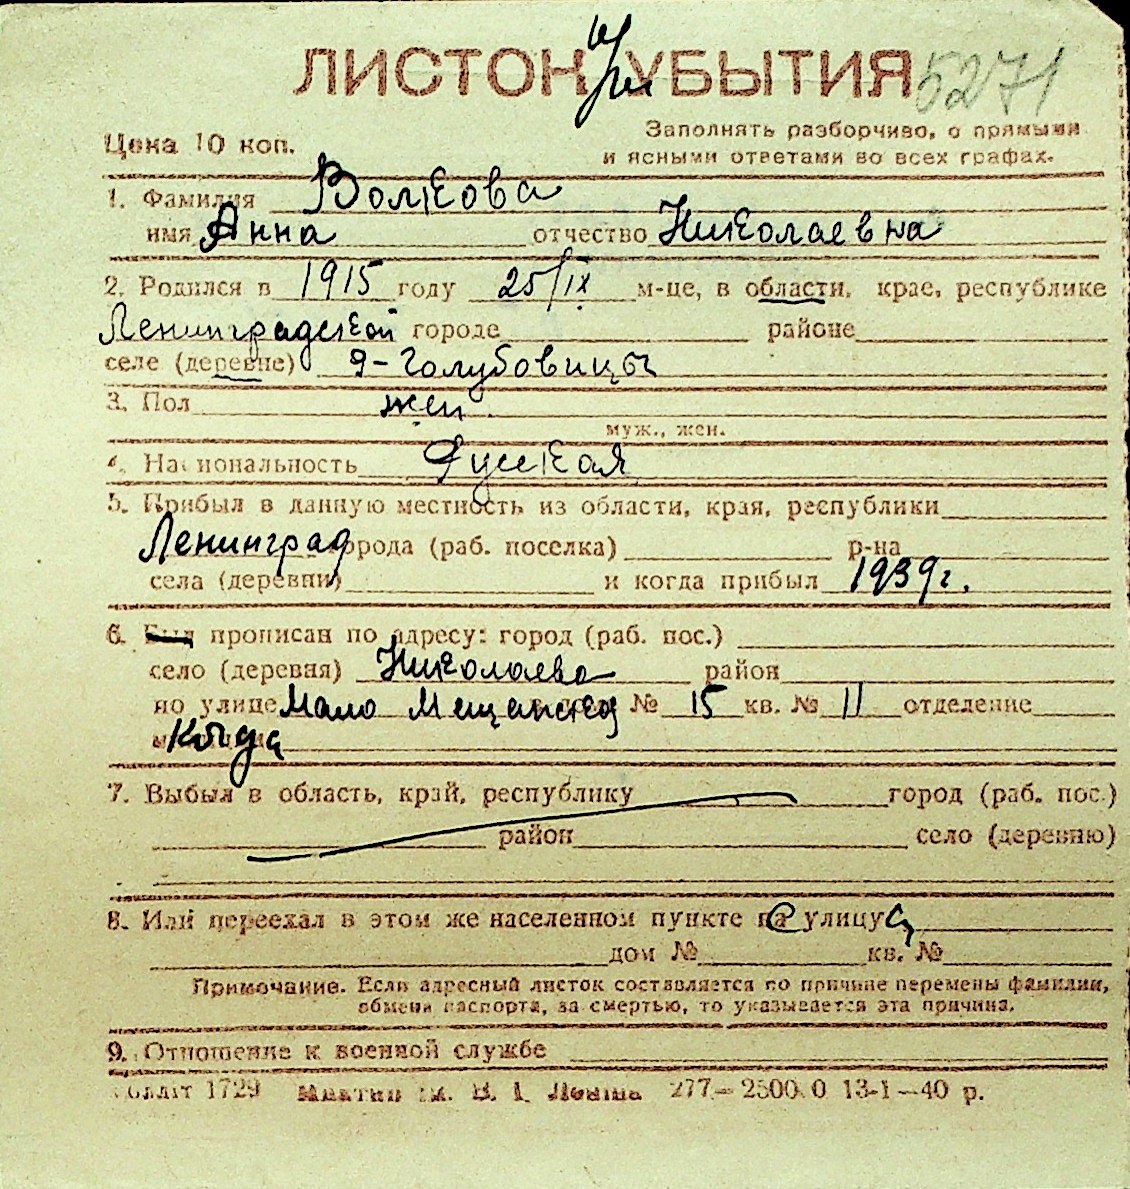 ЛИСТОК УБЫТИЯ 5271
при
Цена 10 коп.
Заполнять разборчиво, с прямыми
и ясными ответами во всех графах.
1. Фамилия Волкова
имя Анна отчество Николаевна
2. Родился в 1915 году 25/IX м-це, в области, крае, республике
Ленинградской городе районе
селе (деревне) д-Голубовицы
3. Пол жен.
муж., жен.
4. Национальность Русская
5. Прибыл в данную местность из области, края, республики
Ленинград города (раб. поселка) р-на
села (деревни) и когда прибыл 1939г.
6. Был прописан по адресу: город (раб. пос.)
село (деревня) Николаево район
по улице Мало Мещанская № 15 кв. № 11 отделение
7. Выбыл в область, край, республику город (раб. пос.)
район село (деревню)
8. Или переехал в этом же населенном пункте на улицу
дом № кв. №
Примечание. Если адресный листок составляется по причине перемены фамилии,
обмена паспорта, за смертью, то указывается эта причина.
9. Отношение к военной службе
1729 277—2500.0 13-1—40 р.